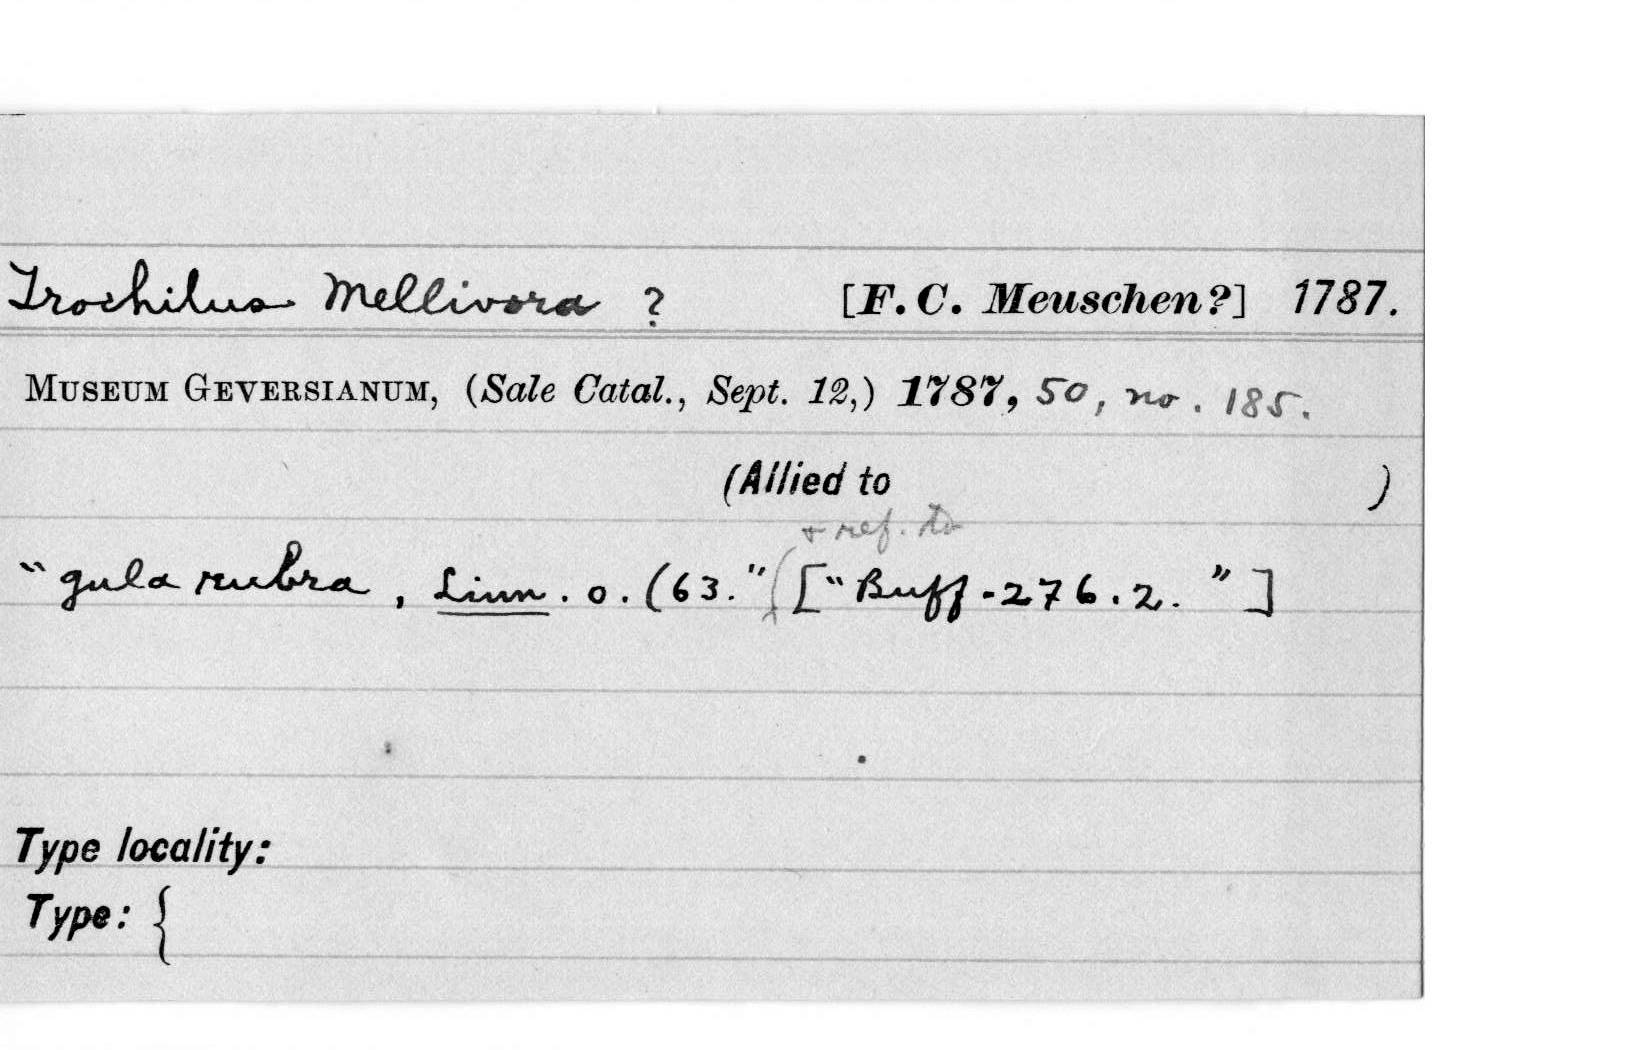 Trochilus Mellivora ? [F. C. Meuschen?] 1787.
Museum Geversianum, (Sale Catal., Sept. 12,) 1787, 50, no. 185.
(Allied to )
+ ref. to
"gula rubra, Linn. o. (63." ["Buff-276.2."]
Type locality:
Type: {